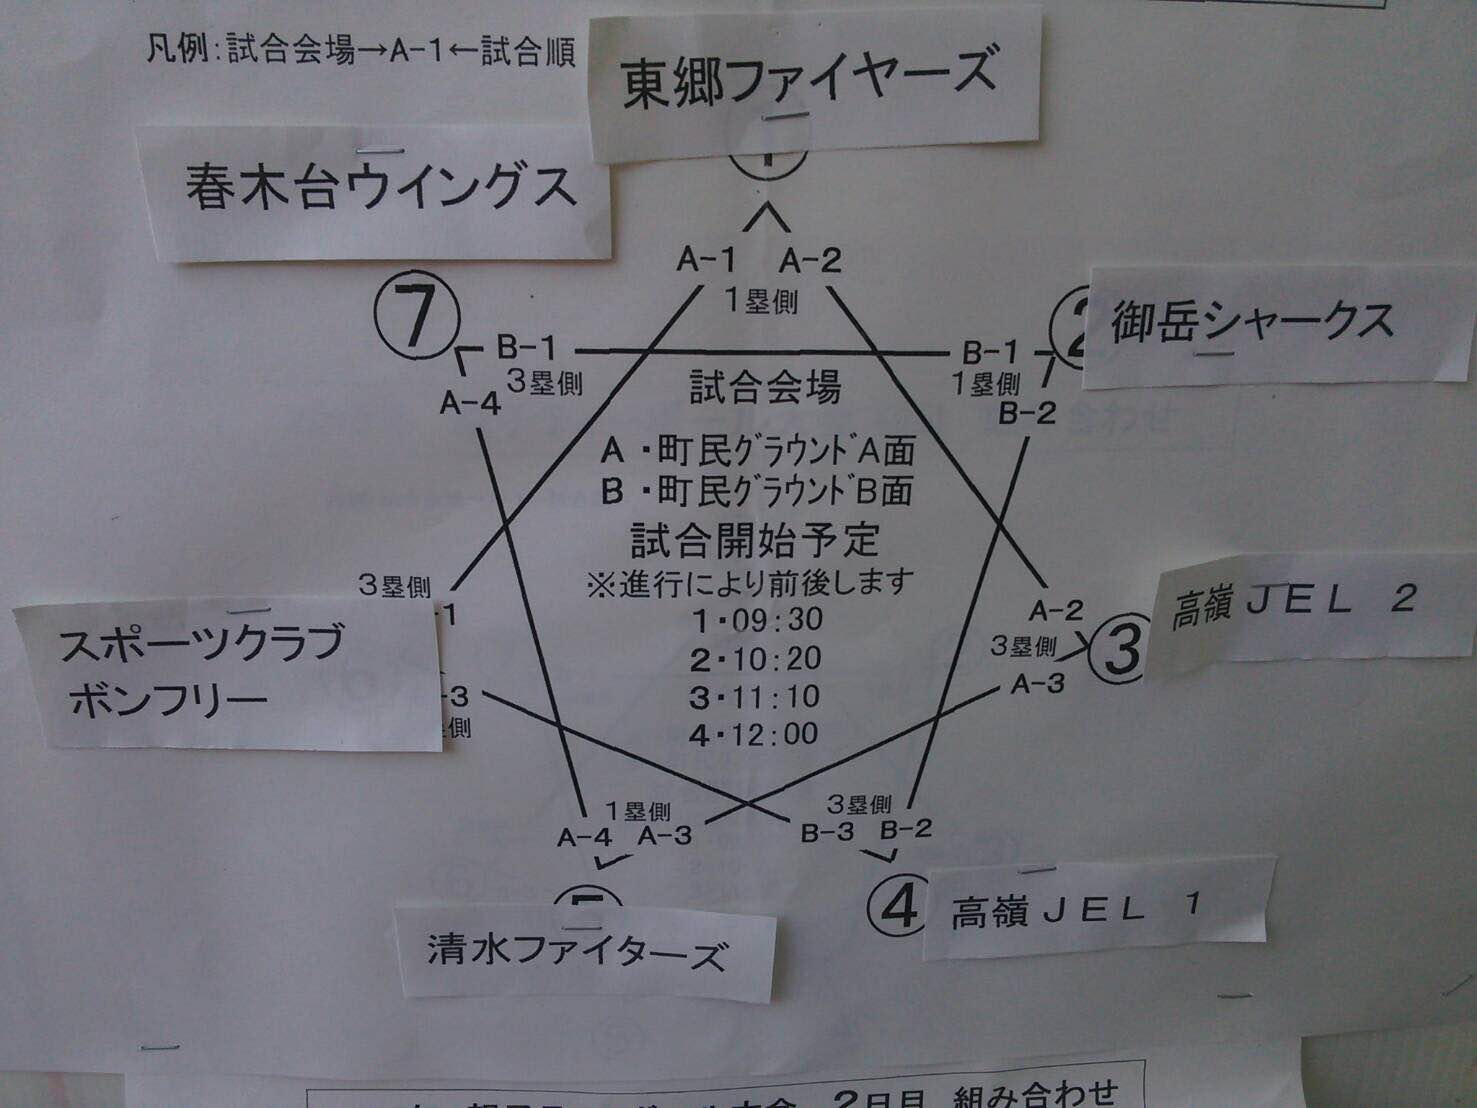 凡例:試合会場→A-1←試合順
東郷ファイヤーズ
春木台ウイングス
1
A-1 A-2
1塁側
7
2
御岳シャークス
B-1
3塁側
A-4
B-1
1塁側
B-2
試合会場
A・町民グラウンドA面
B・町民グラウンドB面
試合開始予定
※進行により前後します
1・09:30
2・10:20
3・11:10
4・12:00
3塁側
-1
スポーツクラブ
ボンフリー
-3
側
A-2
3塁側
A-3
3
高嶺JEL 2
1塁側
A-4 A-3
3塁側
B-3 B-2
5
清水ファイターズ
4
高嶺JEL 1
2日目 組み合わせ